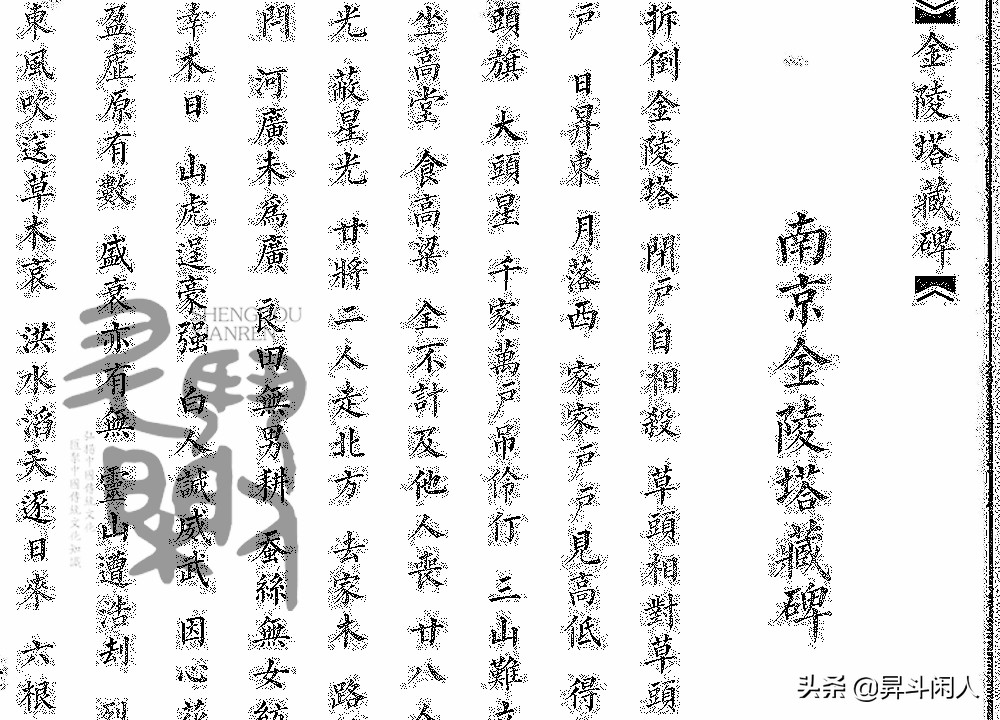 【金陵塔藏碑】
南京金陵塔藏碑
拆倒金陵塔 閉戶自相殺 草頭相對草頭
戶 日昇東 月落西 家家戶戶見高低 得
頭旗 大頭星 千家萬戶吊伶仃 三山難立
坐高堂 食高粱 全不計及他人喪 廿八人
光 蔽星光 廿將二人走北方 去家木 路
閂 河廣未為廣 良田無男耕 蚕絲無女紡
幸木日 山虎逞豪强 白人誠威武 因心花
盈虛原有數 盛衰亦有無 靈山遭浩刦 烈
東風吹送草木哀 洪水滔天逐日來 六根
SHENGDOU
XIANREN
昇斗闲人
弘揚中國傳統文化
頭条 @昇斗闲人